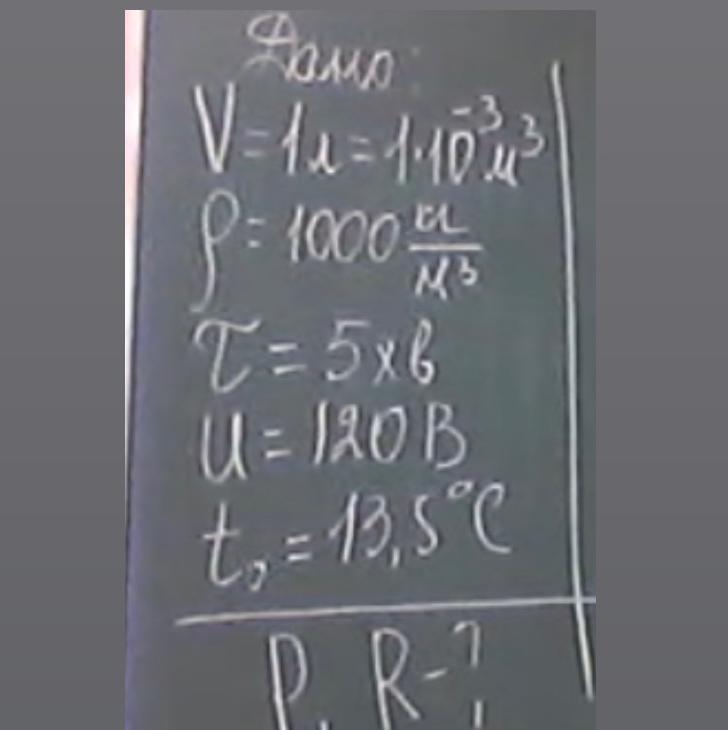 Дано:
V = 1 л = 1·10⁻³ м³
ρ = 1000 кг/м³
τ = 5 хв
U = 120 В
t₁ = 13,5°C
P, R - ?